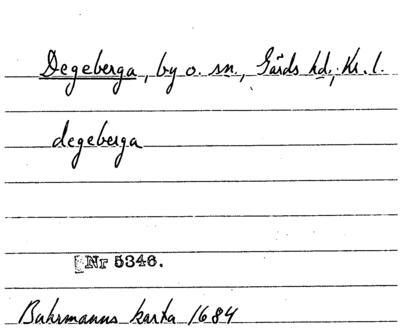 Degeberga, by o. sn., Gärds hd., Kr. l.
degeberga
Nr 5346.
Buhrmanns karta 1684